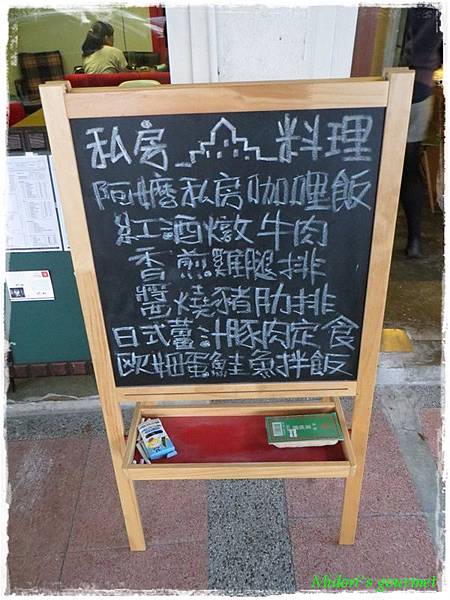 私房 料理
阿嬤私房咖哩飯
紅酒燉牛肉
香煎雞腿排
醬燒豬肋排
日式薑汁豚肉定食
歐姆蛋鮭魚拌飯
Mulan's gourmet